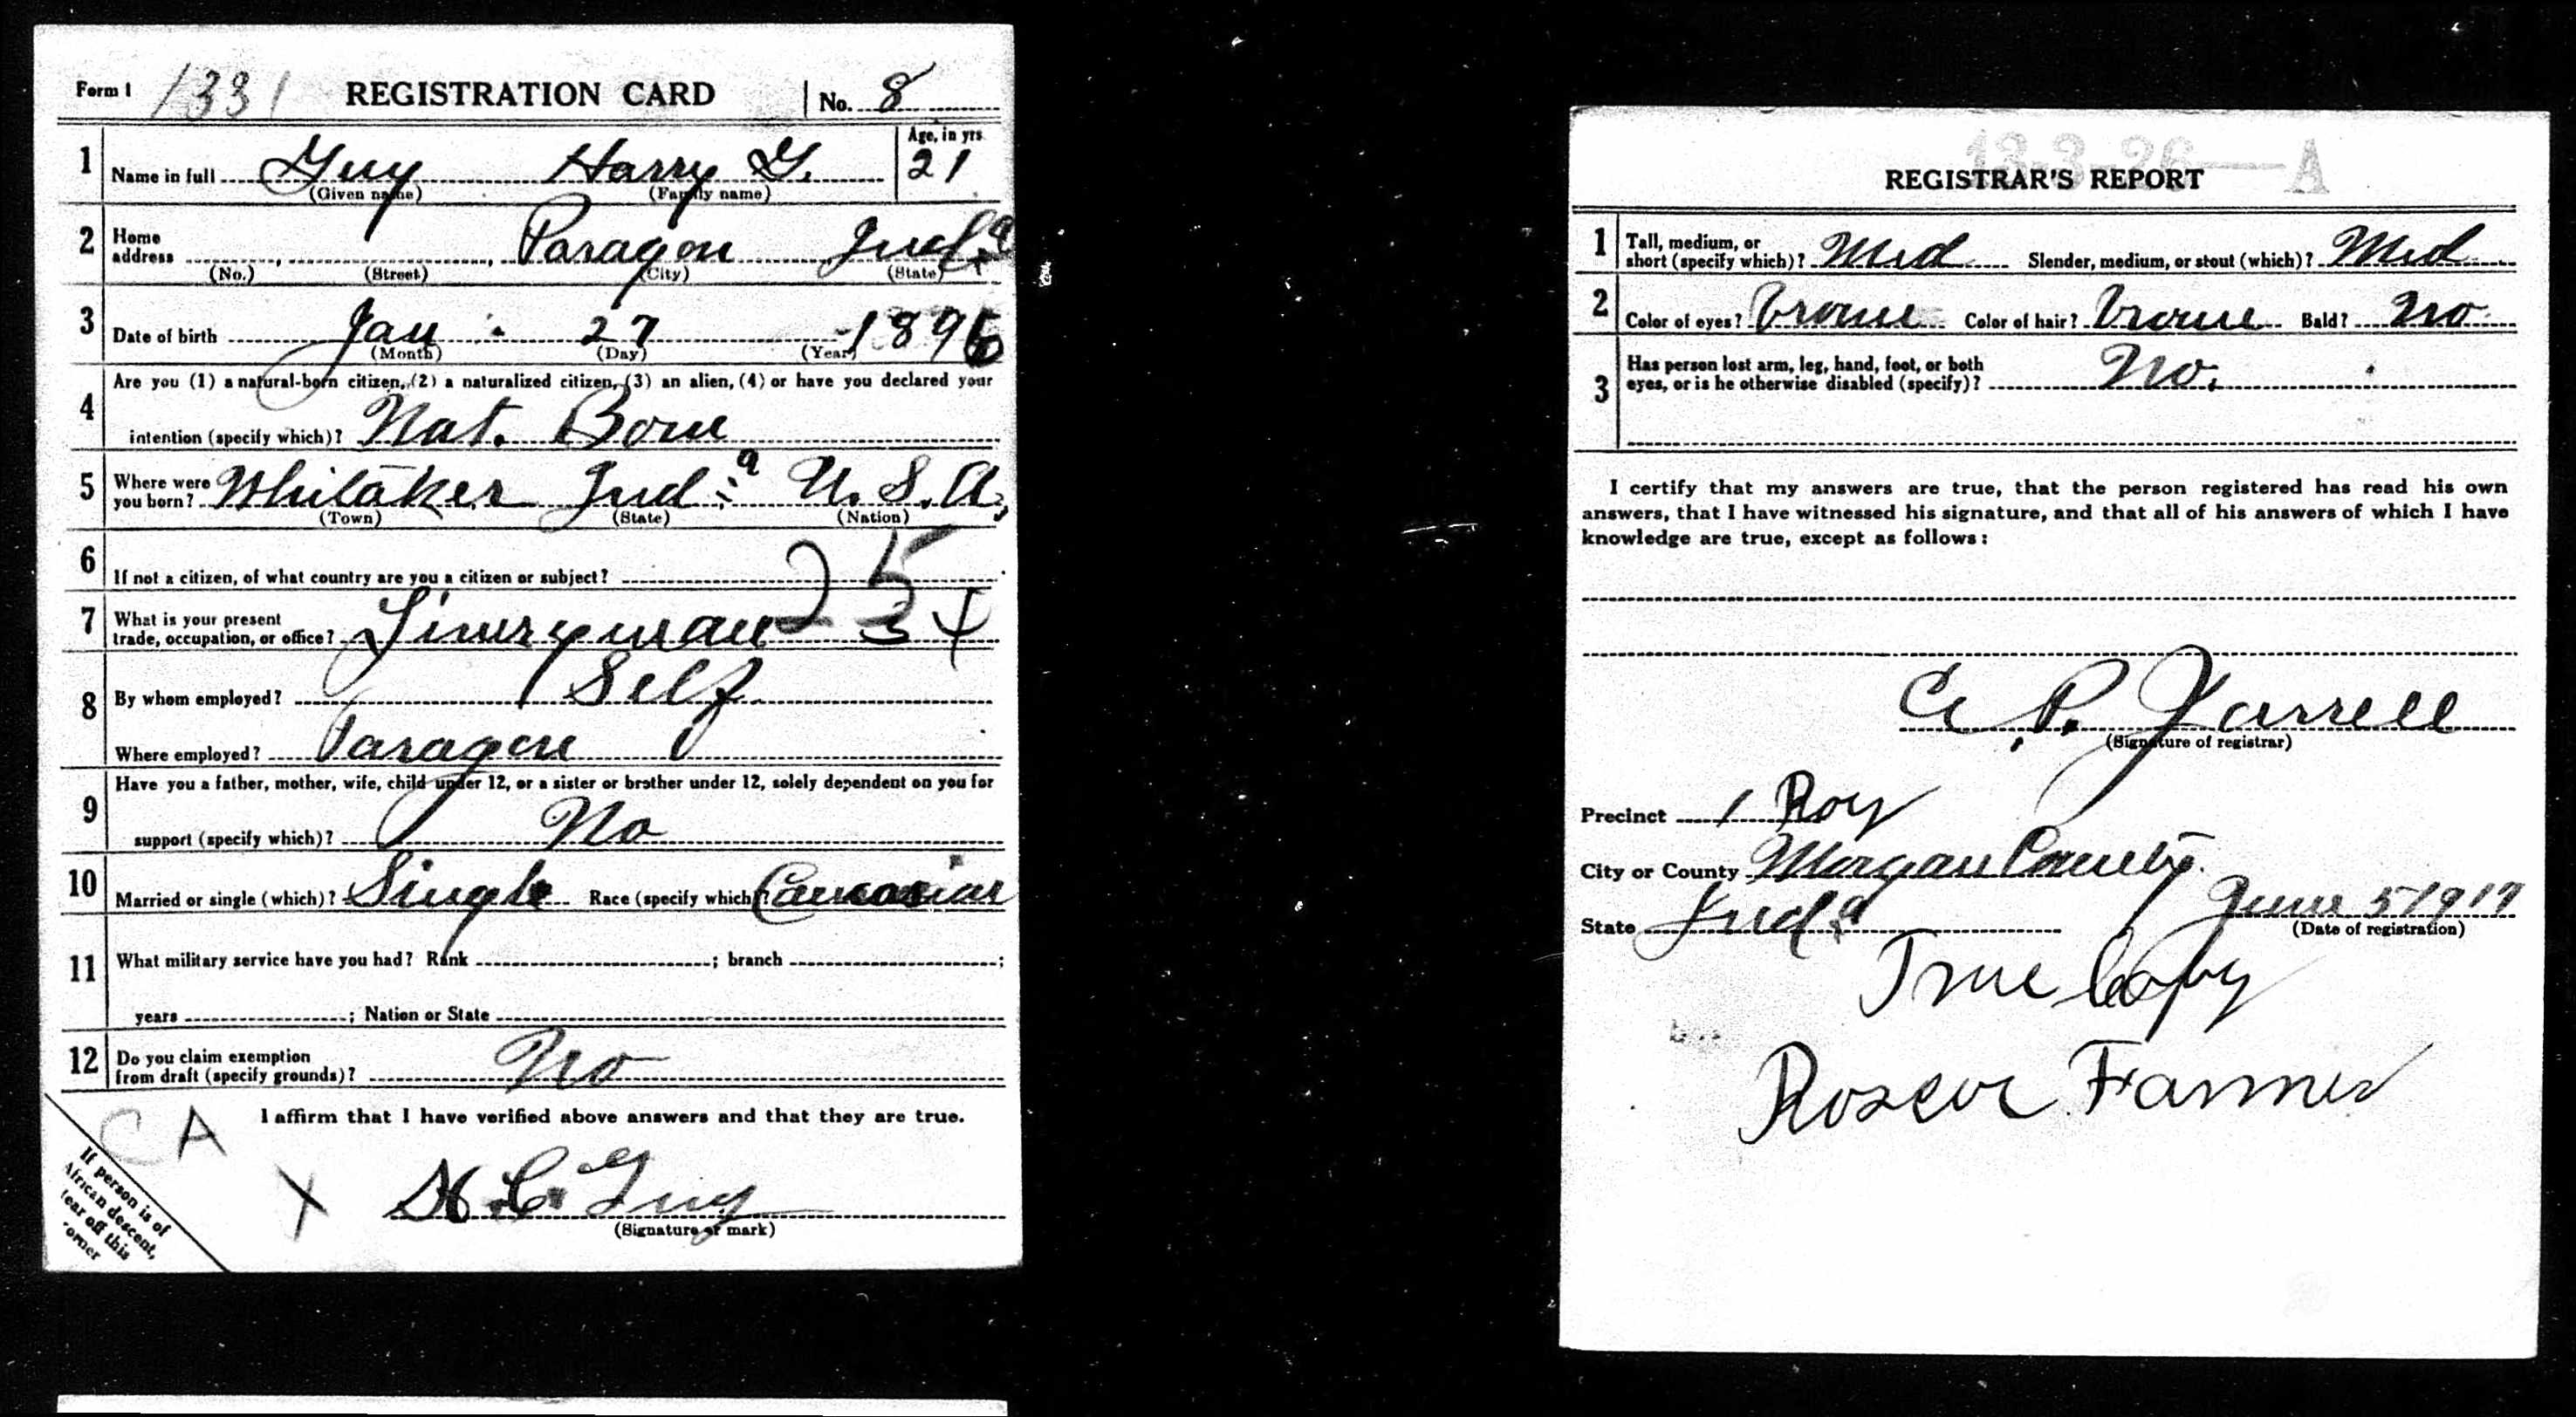 Form 1 1331 REGISTRATION CARD No. 8
1 Name in full Guy Harry G. Age, in yrs 21
(Given name) (Family name)
2 Home address Paragon Ind a
(No.) (Street) (City) (State)
3 Date of birth Jan. 27 1896
(Month) (Day) (Year)
4 Are you (1) a natural-born citizen, (2) a naturalized citizen, (3) an alien, (4) or have you declared your
intention (specify which)? Nat. Born
5 Where were you born? Whitaker Ind a U.S.A.
(Town) (State) (Nation)
6 If not a citizen, of what country are you a citizen or subject?
25
7 What is your present trade, occupation, or office? Liveryman 34
8 By whom employed? Self
Where employed? Paragon
9 Have you a father, mother, wife, child under 12, or a sister or brother under 12, solely dependent on you for
support (specify which)? No
10 Married or single (which)? Single Race (specify which)? Caucasian
11 What military service have you had? Rank ; branch ;
years ; Nation or State
12 Do you claim exemption from draft (specify grounds)? No
I affirm that I have verified above answers and that they are true.
CA
X
H.C. Guy
(Signature or mark)
If person is of
African descent,
tear off this
corner
13-3-26-A
REGISTRAR'S REPORT
1 Tall, medium, or short (specify which)? Med Slender, medium, or stout (which)? Med
2 Color of eyes? Brown Color of hair? Brown Bald? No
3 Has person lost arm, leg, hand, foot, or both
eyes, or is he otherwise disabled (specify)? No.
I certify that my answers are true, that the person registered has read his own
answers, that I have witnessed his signature, and that all of his answers of which I have
knowledge are true, except as follows:
P. Jarrell
(Signature of registrar)
Precinct 1 Ray
City or County Morgan County.
State Ind a June 5 1917
(Date of registration)
True Copy
Roscoe Farmer